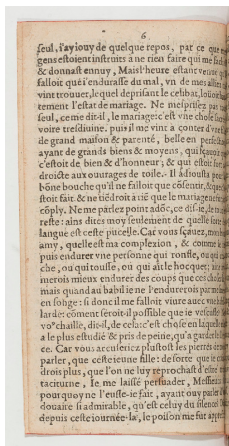 6
seul, i'ay iouy de quelque repos, par ce que
gens estoient instruits à ne rien faire qui me fac
& donnast ennuy, Mais l'heure estant venue qu
falloit que i'endurasse du mal, vn de mes allie
vint trouuer, lequel deprisant le celibat, loüoit
tement l'estat de mariage. Ne mesprisez pas
seul, ce me dit-il, le mariage: c'est vne chose
voire tresdiuine. puis il me vint a conter d'vn
de grand maison & parenté, belle en perfect
ayant de grands biens & moyens, qui sçauoit
c'estoit de bien & d'honneur; & qui estoit fort
droicte aux ouurages de toile. Il adiousta po
bône bouche qu'il ne falloit que côsentir, &
stoit fait. & ne tiêdroit à rié que le mariage ne
côply. Ne me parlez point adôc, ce dis-ie, de
reste: ains dites moy seulement de quelle
langue est ceste pucelle. Car vous sçauez, mon
amy, quelle est ma complexion, & comme ie
puis endurer vne personne qui ronfle, ou qui
che, ou qui tousse, ou qui ait le hocquet:
merois mieux endurer des coups que ces choses
mais quand au babil ie ne l'endurerois par
en songe: si donc il me falloit viure auec vne
larde: cõment seroit-il possible que ie vescusse
vo' chaille, dit-il, de cela: c'est chose en laquelle
a le plus estudié & pris de peine, qu'a garder
ce. Car vous accuseriez plustost les pierres de
parler, que ceste ieune fille: de sorte que ie
drois plus, que l'on ne luy reprochast d'estre
taciturne, Ie me laissé persuader, Messieurs
pourquoy ne l'eusse-ie fait, ayant ouy parler
douaire si admirable, qu'est celuy du silence
depuis ceste iournée-la, le poison me fut